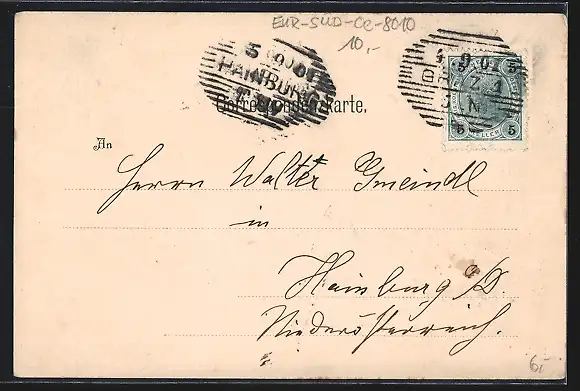 EUR-SÜD-Oe-8010
10,-
5 9 01
HAINBURG
4 9 01
5 5
Correspondenzkarte.
An
Herrn Walter Gmeindl
in
Hainburg a/D.
Niederösterreich.
6,-